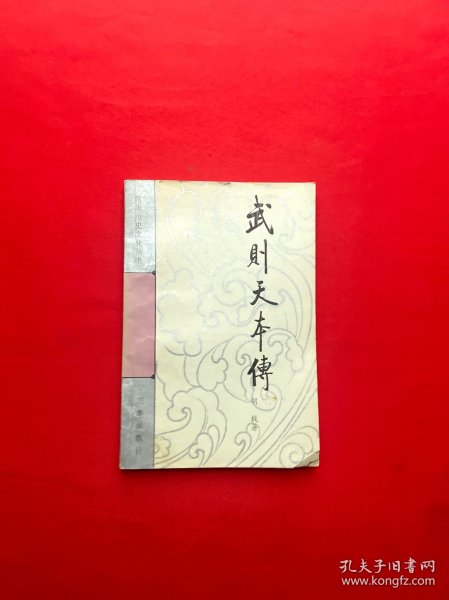 武則天本傳
胡戟著
隋唐历史文化丛书
三秦出版社
孔夫子旧书网
www.kongfz.com